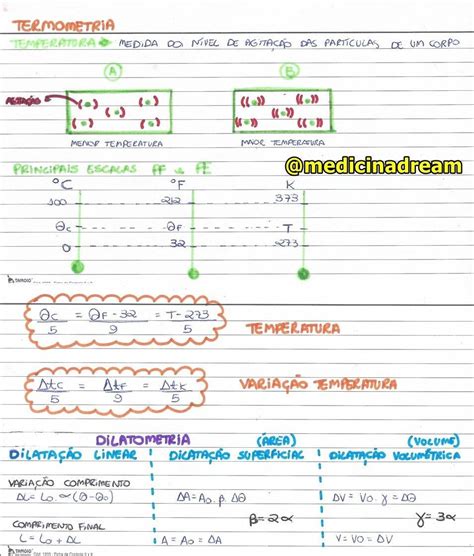 TERMOMETRIA
TEMPERATURA → MEDIDA DO NÍVEL DE AGITAÇÃO DAS PARTÍCULAS DE UM CORPO
A B
AGITAÇÃO
MENOR TEMPERATURA MAIOR TEMPERATURA
@medicinadream
PRINCIPAIS ESCALAS PF vs PE
°C °F K
100 212 373
θc θF T
0 32 273
TAMOIO
θc/5 = θF-32/9 = T-273/5 TEMPERATURA
Δtc/5 = ΔtF/9 = Δtk/5 VARIAÇÃO TEMPERATURA
DILATOMETRIA (ÁREA) (VOLUME)
DILATAÇÃO LINEAR DILATAÇÃO SUPERFICIAL DILATAÇÃO VOLUMÉTRICA
VARIAÇÃO COMPRIMENTO
ΔL = L0 α (θ-θ0) ΔA = A0 . β . Δθ ΔV = V0 . γ = Δθ
β = 2α γ = 3α
COMPRIMENTO FINAL
L = L0 + ΔL A = A0 + ΔA V = V0 = ΔV
TAMOIO